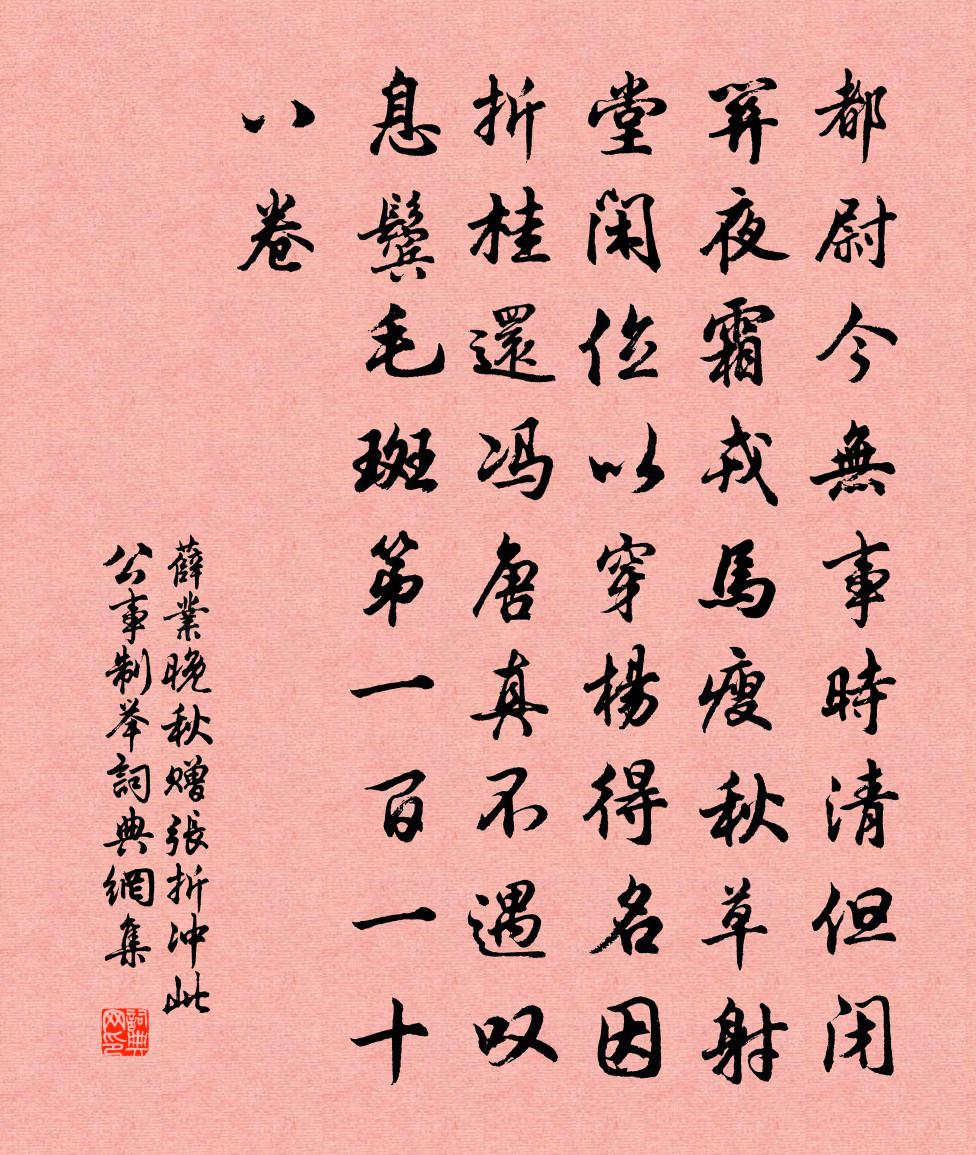 都尉今無事時清但闭
关夜霜戎馬瘦秋草射
堂闲位以穿楊得名因
折桂還冯唐真不遇叹
息鬓毛斑第一百一十
八卷
薛業晚秋赠張折冲此
公事制举詞典網集
詞典网印